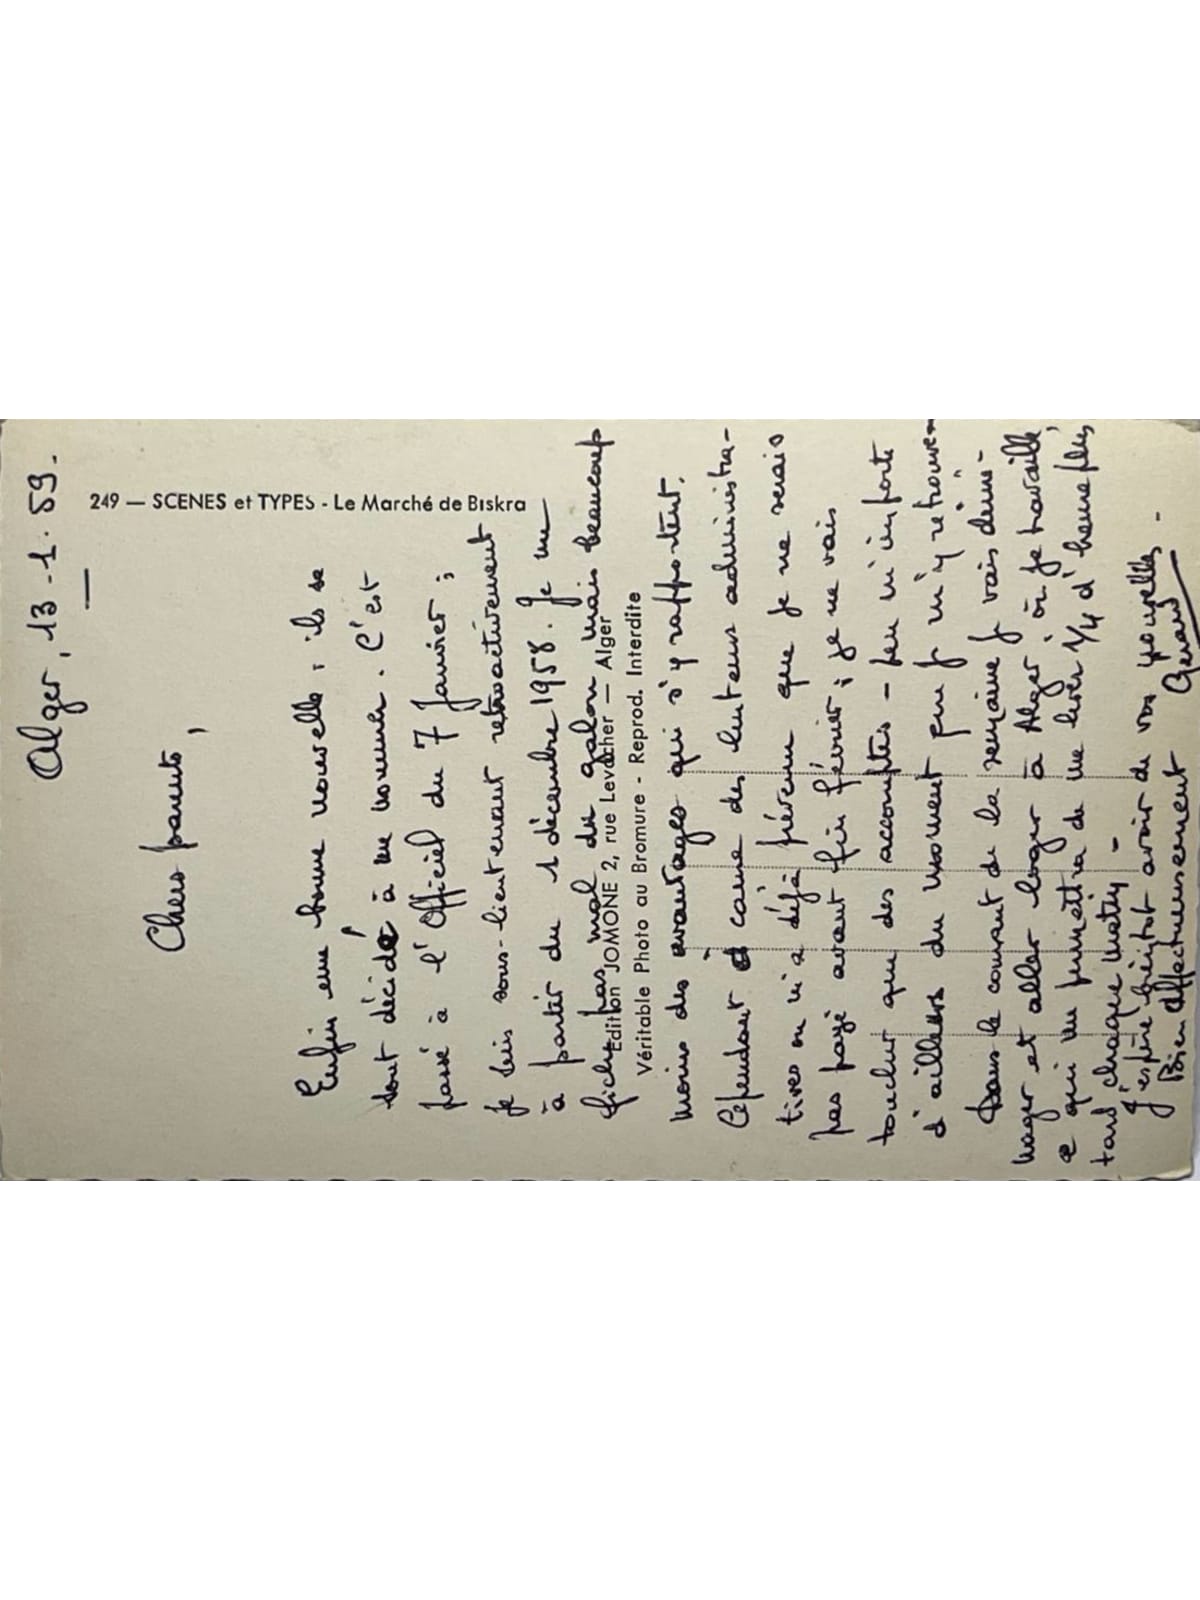 Alger, 13-1.59.
Chers parents,
Enfin une bonne nouvelle ; ils se
sont décidé à me nommer. C'est
passé à l'Officiel du 7 Janvier ;
je suis sous-lieutenant rétroactivement
à partir du 1 décembre 1958. Je me
fiche pas mal du galon mais beaucoup
moins des avantages qui s'y rapportent.
Cependant à cause des lenteurs administra-
tives on m'a déjà prévenu que je ne serais
pas payé avant fin février ; je ne vais
toucher que des acomptes - peu m'importe
d'ailleurs du moment que j'm'y retrouve
Dans le courant de la semaine j'vais démé-
nager et aller loger à Alger où je travaille
ce qui me permettra de me lever 1/4 d'heure plus
tard chaque matin -
J'espère bientôt avoir de vos nouvelles -
Bien affectueusement Gérard
249 — SCENES et TYPES - Le Marché de Biskra
Edition JOMONE 2, rue Levacher — Alger
Véritable Photo au Bromure - Reprod. Interdite